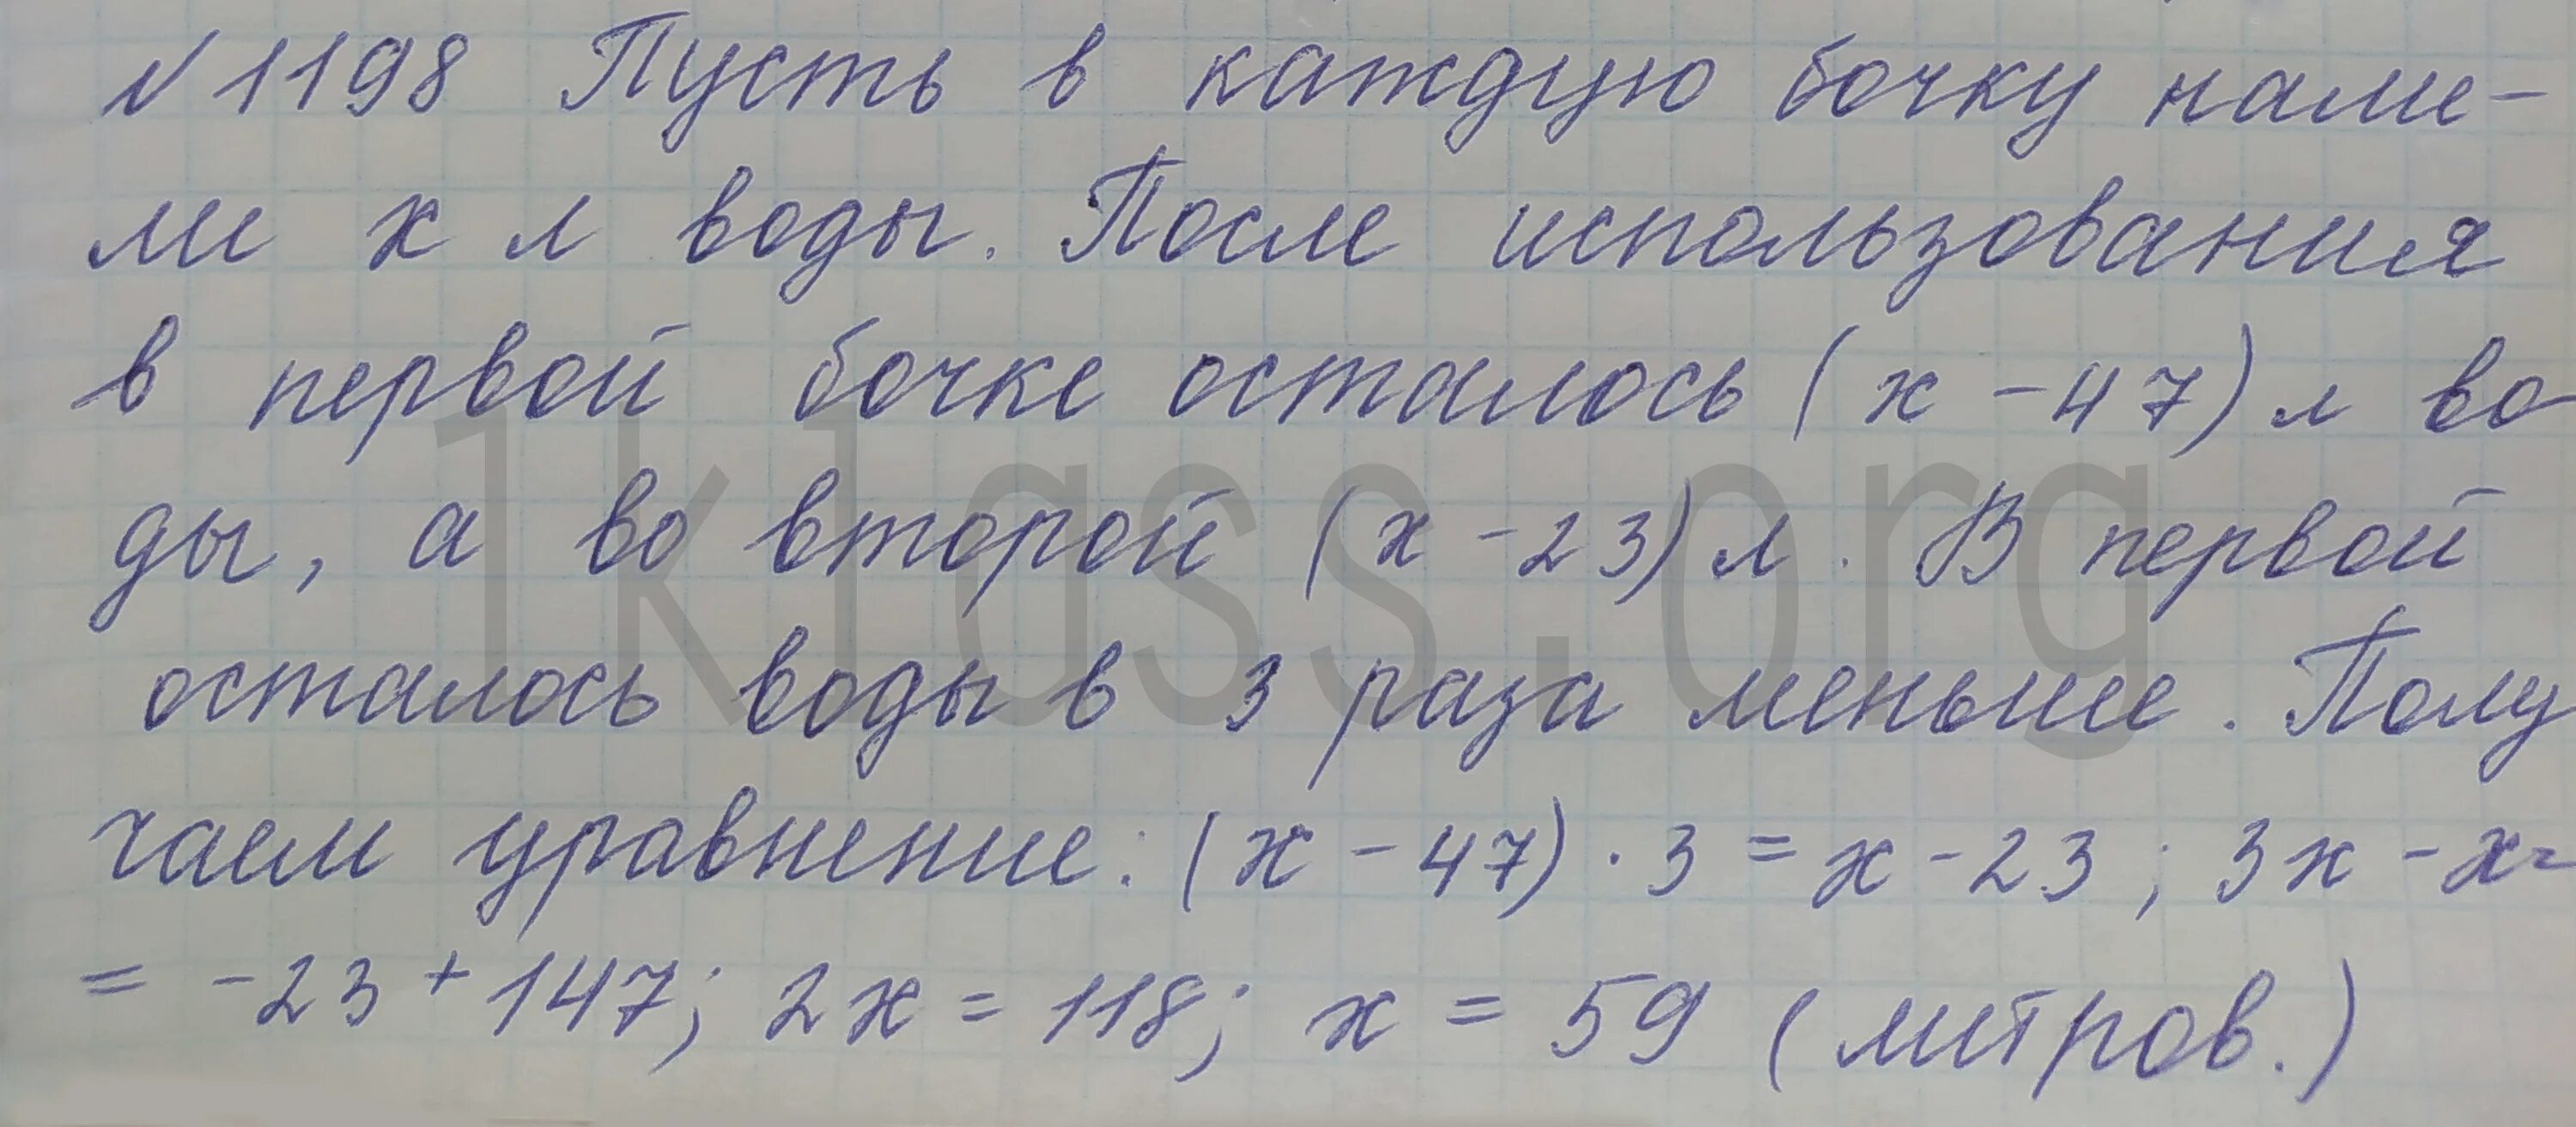 №1198 Пусть в каждую бочку нали-
ли х л воды. После использования
в первой бочке осталось (х - 47) л во-
ды, а во второй (х - 23) л. В первой
осталось воды в 3 раза меньше. Полу
чаем уравнение: (х - 47) · 3 = х - 23; 3х - х=
= - 23 + 147; 2х = 118; х = 59 (литров.)
1klass.org